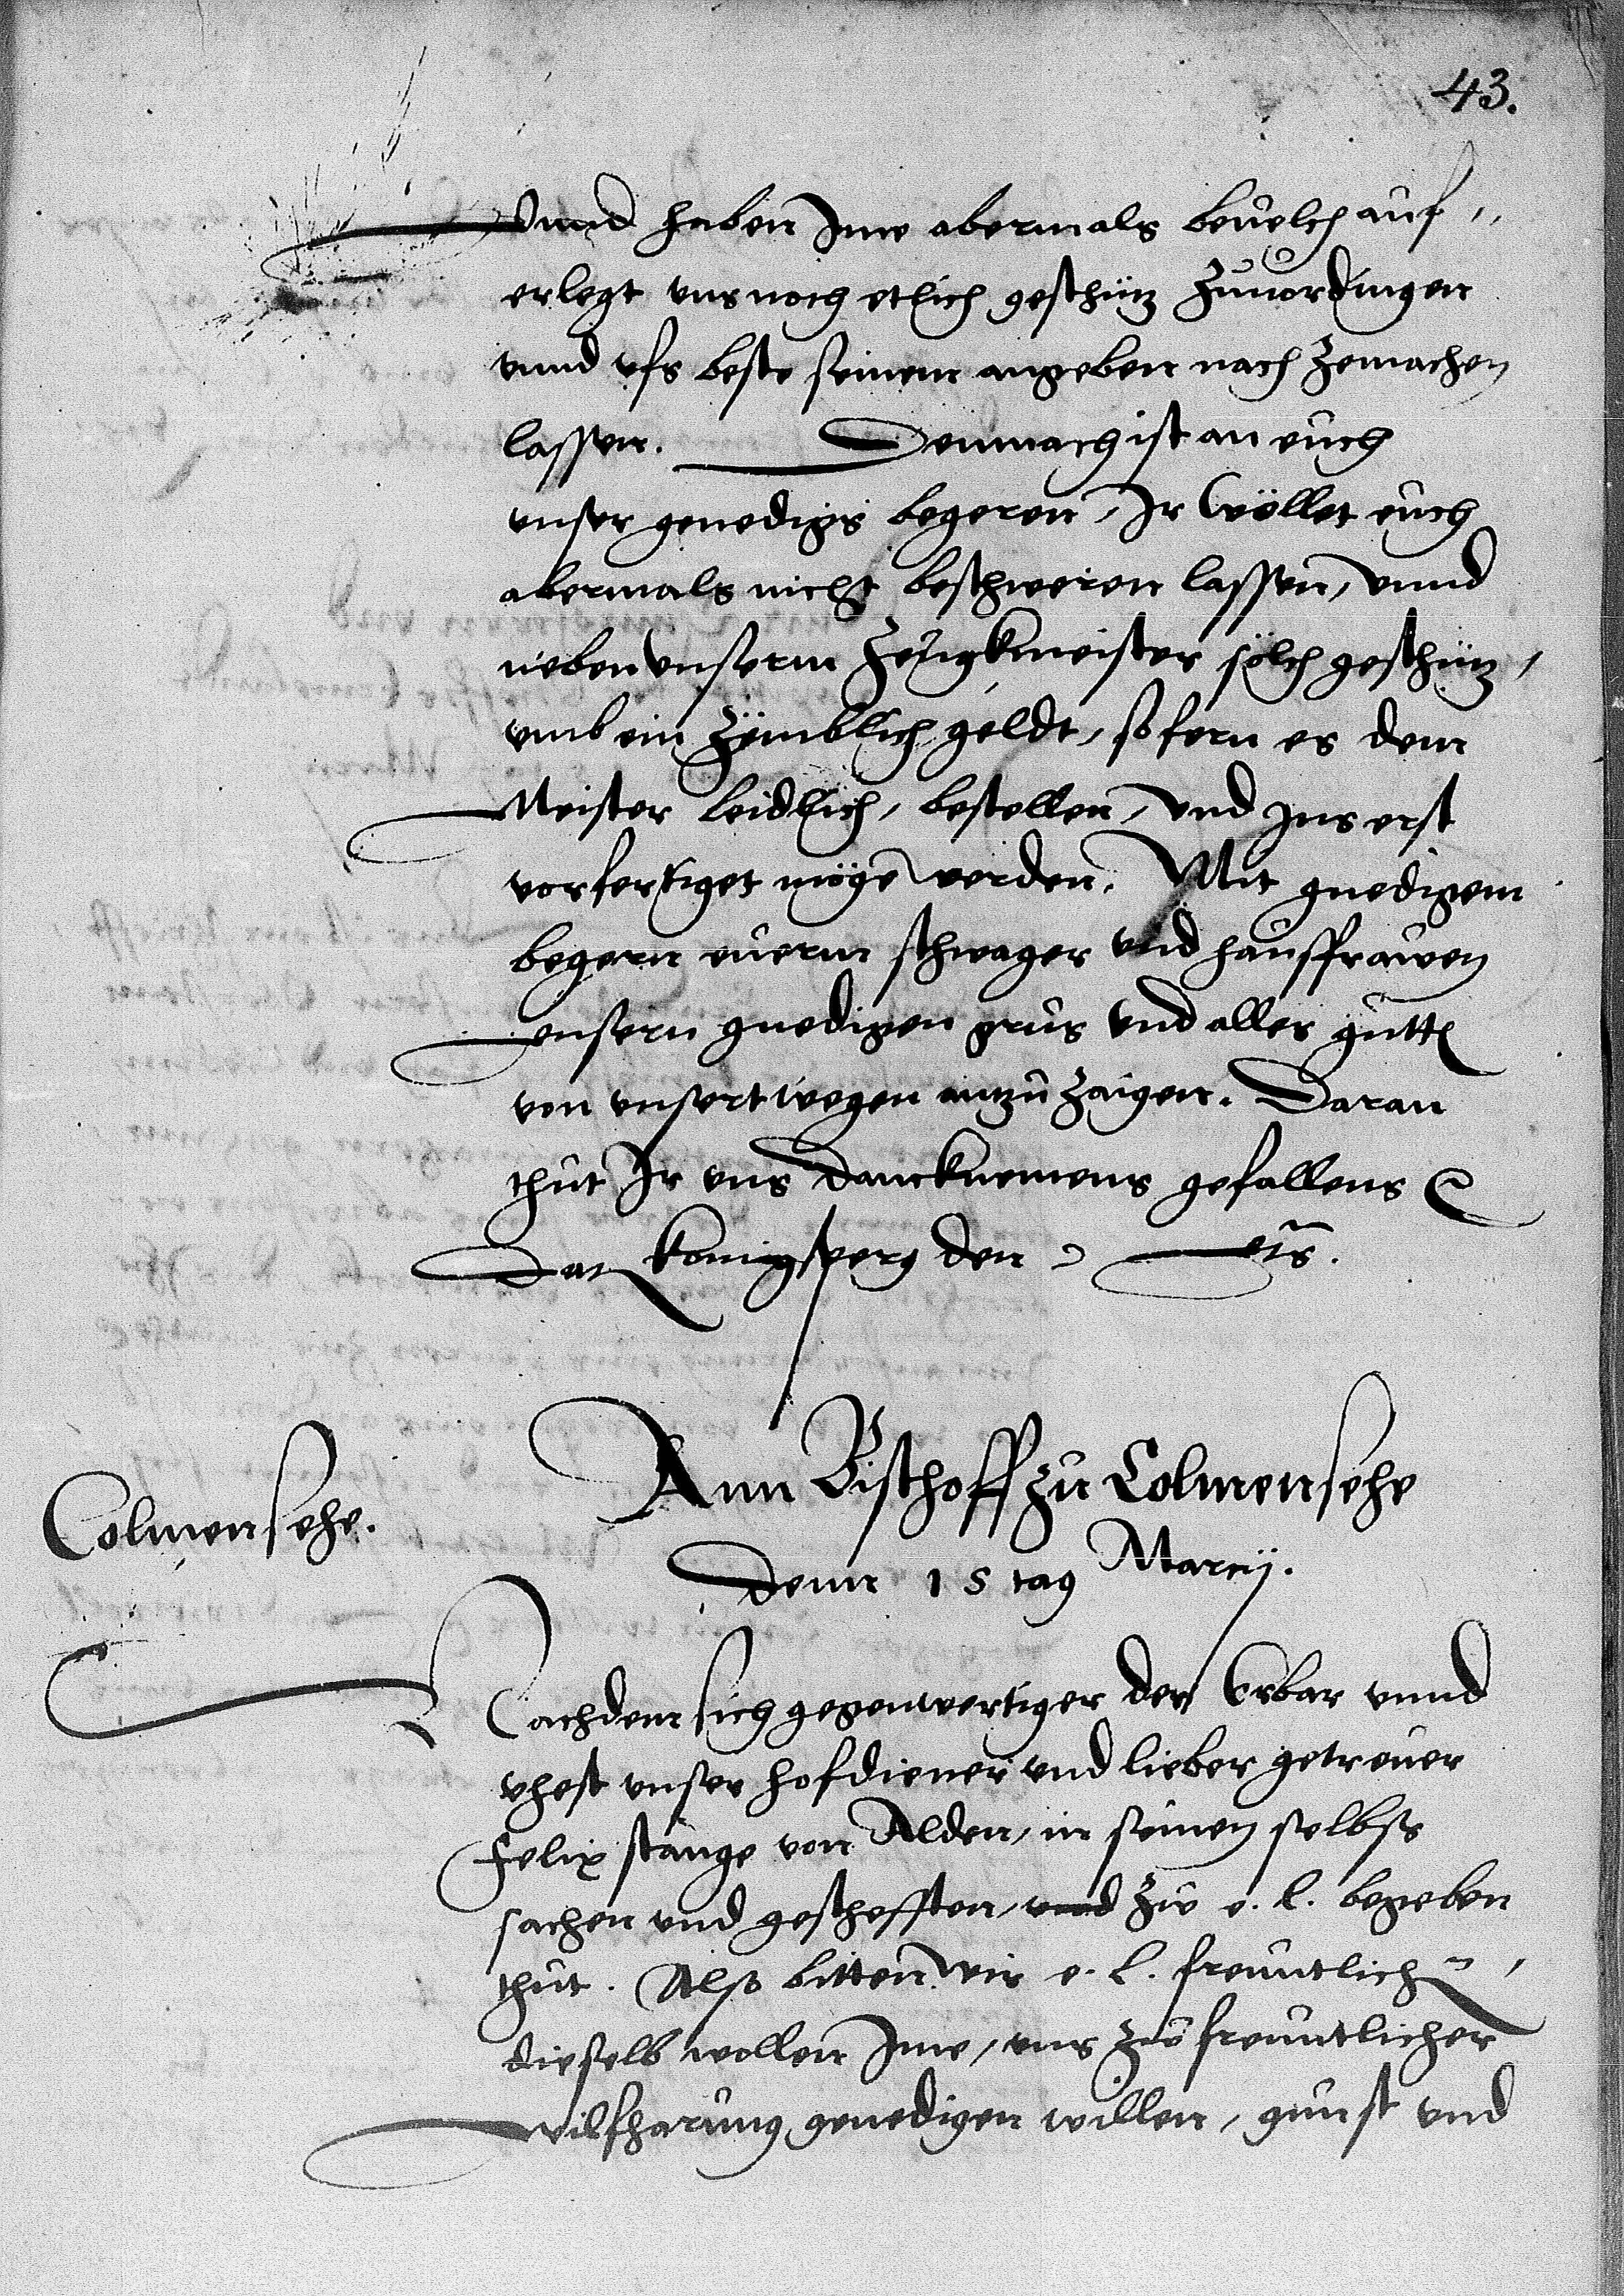 43.
Vnnd haben Ime abermals beuelch auf„
erlegt vns noch etlich geschütz Zuuordingen
vnnd vfs beste seinem angeben nach Zemachen
lassen. Demnach ist an euch
vnser genedigs begeren, Ir wöllet euch
abermals nicht beschweren lassen, vnnd
nieben vnserm Zeugkmeister sölch geschütz,
vmb ein Zÿmblich geldt, so fern es dem
Meister leidlich, bestellen, vnd Ins erst
vorfertiget möge werden. Mit gnedigem
begern euerm schwager vnd hausfrawen
vnsern gnedigen grus vnd alles gutts
von vnsert wegen antzuzaigen. Daran
thut Ir vns dancknemens gefallens
Dat Konigsperg den ets.
Ann Bischoff zu Colmensehe
Colmensehe.
Denn 15 tag Marcij.
Nachdem sich gegenwertiger der Erbar vnnd
vhest vnser hofdiener vnd lieber getreuer
Felix stange von Alden, in seinen selbst
sachen vnd gescheften, vnd zu e. l. begeben
thut. Also bitten wir e. l. freuntlich,
dieselb wollen Ime, vns zu freuntlicher
wilfharung genedigen willen, gunst vnd